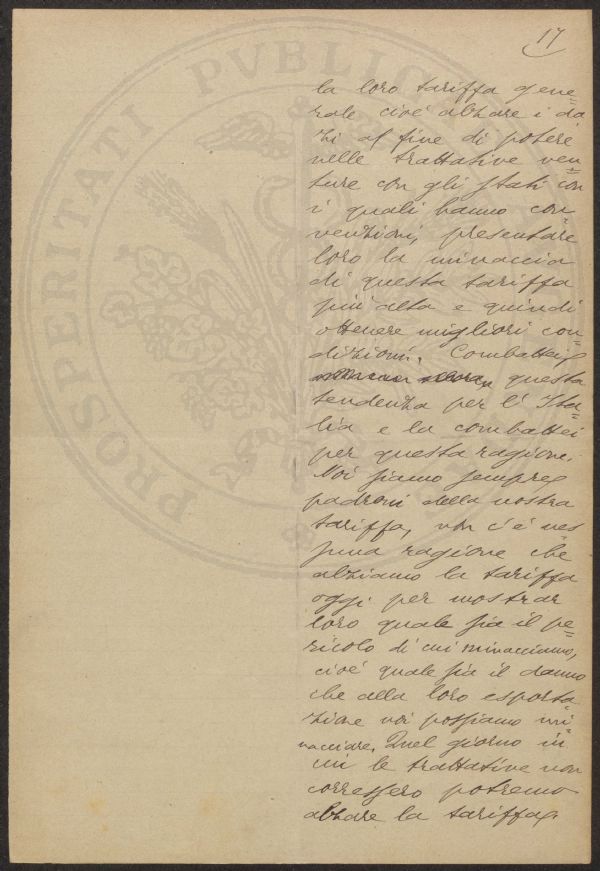 17
la loro tariffa gene=
rale cioè alzare i da
zi al fine di potere
nelle trattative ven=
ture con gli Stati con
i quali hanno con=
venzioni, presentare
loro la minaccia
di questa tariffa
più alta e quindi
ottenere migliori con=
dizioni. Combattei
questa
tendenza per l'Ita=
lia e la combattei
per questa ragione.
Noi siamo sempre
padroni della nostra
tariffa, non c'è nes
suna ragione che
alziamo la tariffa
oggi per mostrar
loro quale sia il pe=
ricolo di cui minacciamo,
cioè quale sia il danno
che alla loro esporta
zione noi possiamo mi=
nacciare. Quel giorno in
cui le trattative non
corressero potremo
alzare la tariffa
PROSPERITATI PVBLIC